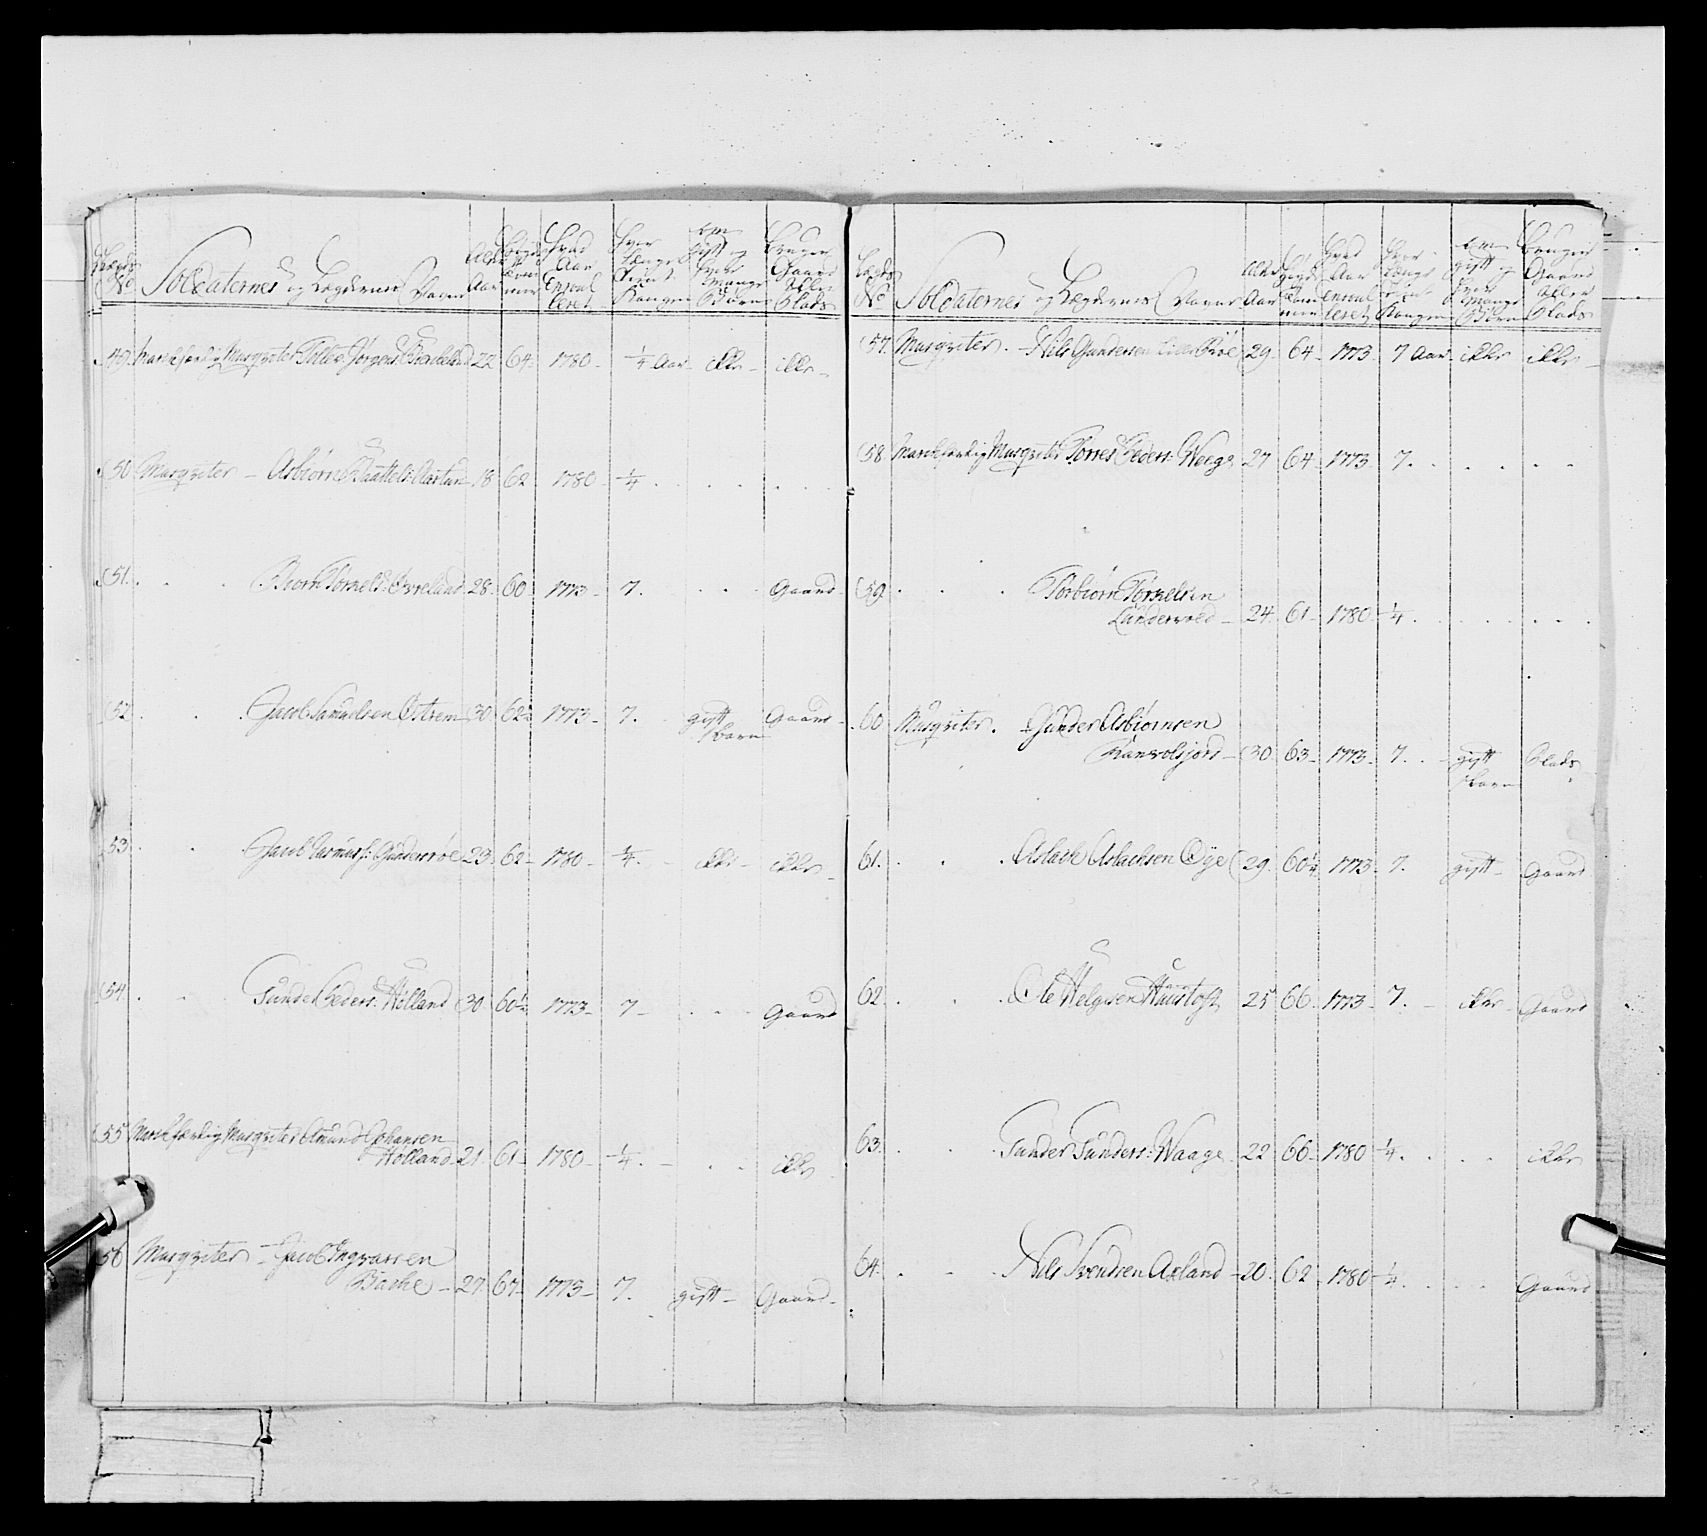 Lægds No Soldaternes og Lægdernes Navne Alder Aar Høyde Tommer Hvad Aar Enroulleret Hvor Længe Tient Kongen Om Gift og hvor Mange Børn Bruger Gaard eller Plads
49. Marchfærdig Musqveter Tollev Jørgens: 22 64 1780 ¼ Aar ikke ikke
50 Musqveter Asbiørn 18 62 1780 ¼
51. Biørn Torkels: 28 60 1773 7. Gaard
52 Jacob Samuelsen Østrem 30 62½ 1773 7. gift
1 barn Gaard
53 Jacob Rasmus: Gunderrøe 23 62 1780 ¼ ikke ikke
54 Gunder Peders: Hølland 30 60½ 1773 7 Gaard
55 Marchfærdig Musqveter Amund Johansen
Hølland 21 61 1780 ¼ ikke
56 Musqveter Jacob Ingvarsen
Bache 27 67 1773 7. gift Gaard
Lægds No Soldaternes og Lægdernes Navne Alder Aar Høyde Tommer Hvad Aar Enroulleret Hvor længe Tient Kongen Om gift og hvor Mange Børn Bruger Gaard eller Plads
57. Musqveter. Nils Gundersen 29 64 1773 7 Aar ikke ikke
58 Marchfærdig Musqveter Torres Peders: Weege 27 64 1773 7.
59 Torbiørn Torkelsen
Lunderwold 24 61 1780 ¼
60 Musqveter. Gunder Asbiørnsen
30 63 1773 7. gift Plads
1 barn
61. Aslach Aslachsen Øye 29 60½ 1773 7. gift Gaard
62 Ole Helgesen Haustoft 25 66 1773 7. ikke Gaard
63. Gunder Gunders: Waage 22 60 1780 ¼ ikke
64. Nils Svendsen Axland 20 62 1780 ¼ Gaard